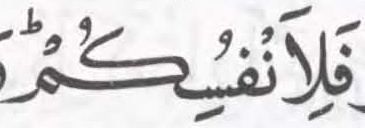 فَلِاَنْفُسِكُمْؕ